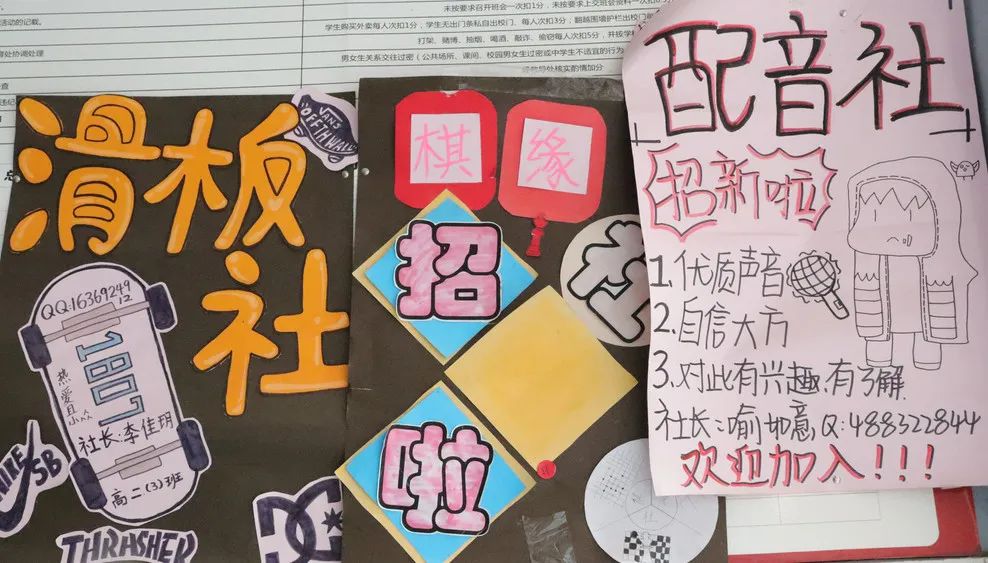 未按要求召开班会一次扣1分,
学生购买外卖每人次扣1分,学生无出门条私自出校门、每人次扣3分;
打架、赌博、抽烟、喝酒、敲诈、偷窃每人次扣5分,
男女生关系交往过密(公共场所、课间、校园男女生过密或中学生不适宜的行为
活动的记载。
滑板
社
VANS
OFF THE WALL
QQ:1636924912
1807
热爱且小众
社长:李佳玥
高二(3)班
NIKE SB
THRASHER
DC
棋缘
社
招
啦
配音社
招新啦
1.优质声音
2.自信大方
3.对此有兴趣,有了解
社长:喻如意,Q:488322844
欢迎加入!!!